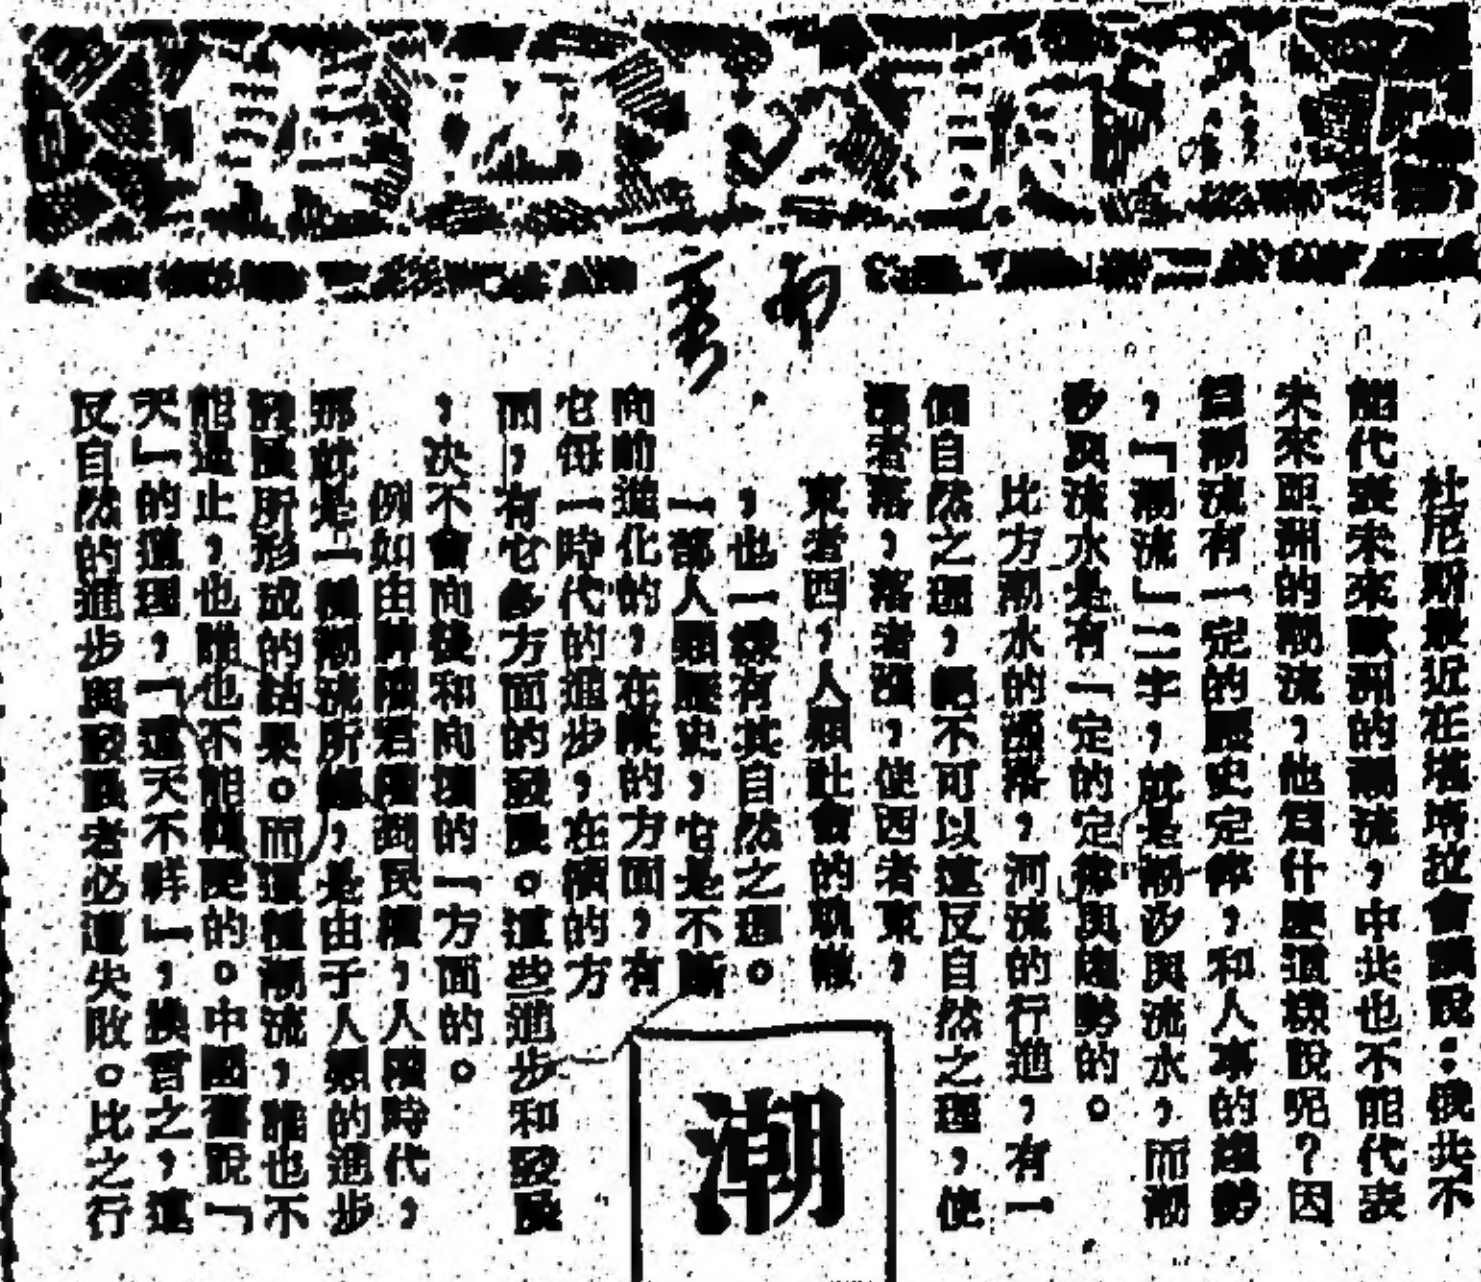 杜尼斯最近在塔培拉會議說：俄共不
能代表未來歐洲的潮流，中共也不能代表
未來亞洲的潮流，他為什麼這樣說呢？因
為潮流有一定的歷史定律，和人事的趨勢
，「潮流」二字，就是潮汐與流水，而潮
汐與流水是有一定的定律與趨勢的。
比方潮水的漲落，河流的行進，有一
個自然之理，絕不可以違反自然之理，使
漲者落，落者漲，使西者東，
東者西，人類社會的軌轍
，也一樣有其自然之理。
一部人類歷史，它是不斷
向前進化的，在縱的方面，有
它每一時代的進步，在橫的方
面，有它多方面的發展。這些進步和發展
，決不會向後和向壞的一方面的。
例如由神權君權到民權，人權時代，
那就是一種潮流所趨，是由于人類的進步
發展所形成的結果。而這種潮流，誰也不
能遏止，也誰也不能的。中國舊說「
天」的道理，「違天不祥」，換言之，違
反自然的進步與發展者必遭失敗。比之行
潮